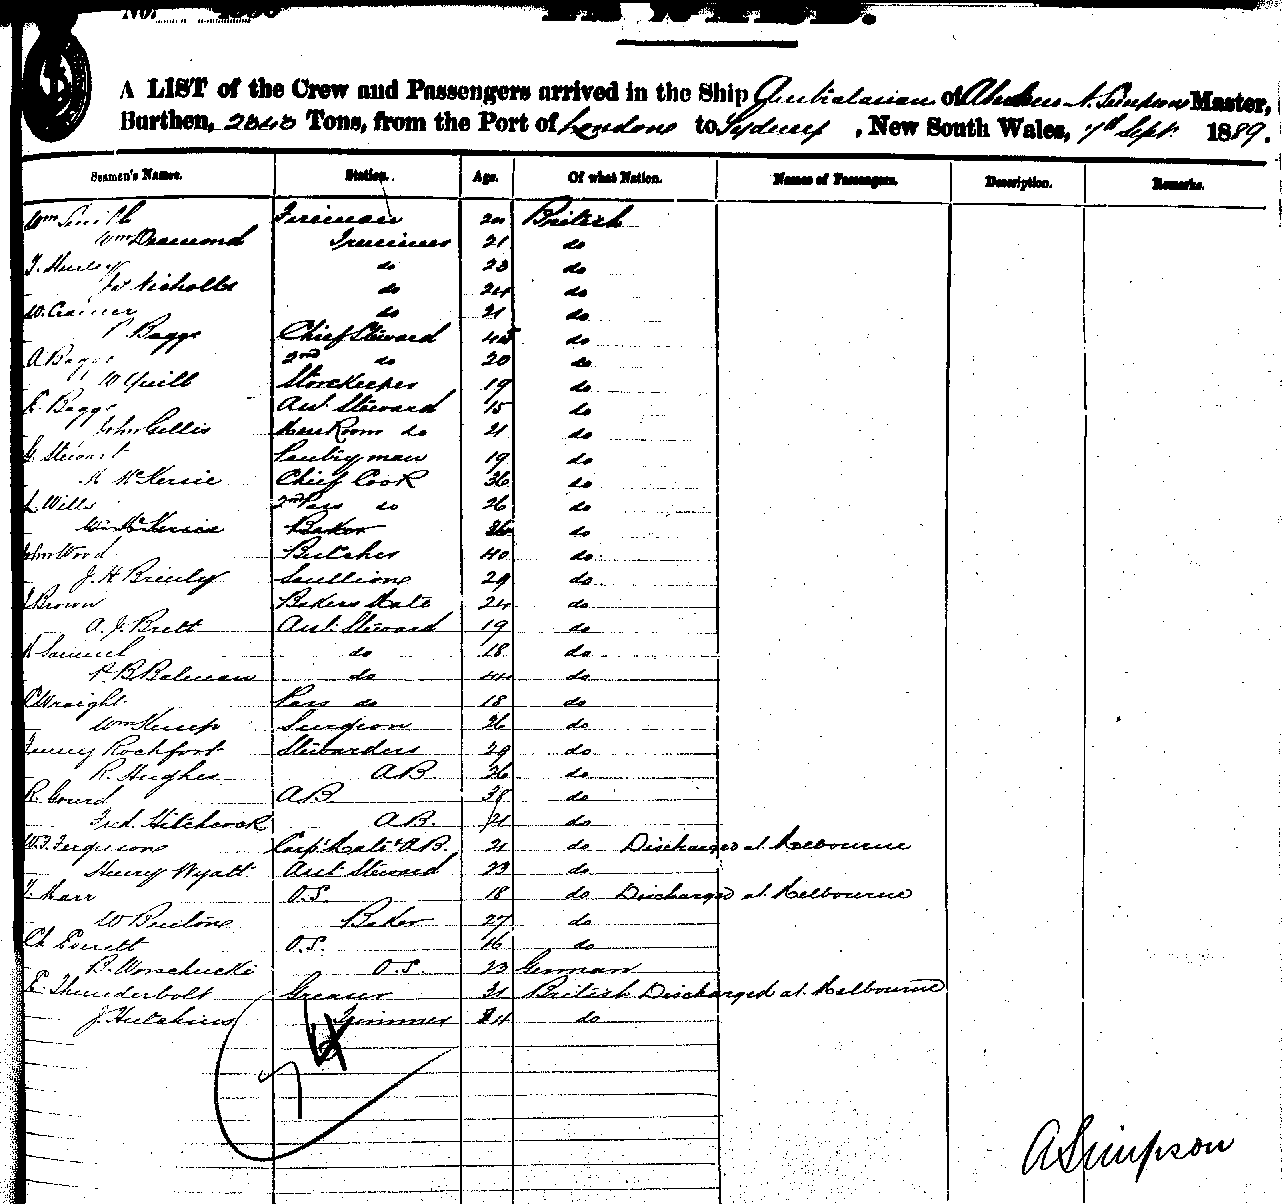 No.
A LIST of the Crew and Passengers arrived in the Ship Australasian of Alexander Simpson Master,
Burthen, 2343 Tons, from the Port of London to Sydney, New South Wales, 7th Sept. 1889.
Seamen's Names. Station. Age. Of what Nation. Names of Passengers. Description. Remarks.
Wm Smith Fireman British
Wm Desmond Trimmer 21 do
T. Hurley do 23 do
Js Nicholls do 24 do
W. do 21 do
P Baggs Chief Steward 45 do
A Baggs 2nd do 20 do
W Quill Storekeeper 19 do
E Baggs Asst Steward 15 do
John Gillis Mess Room do 21 do
G. Stewart Pantryman 19 do
A McKersie Chief Cook 36 do
L Wills 2nd Pass do 26 do
Wm McKersie Baker do
John Wood Butcher 40 do
J. H Brierly Scullion 29 do
J Brown Bakers Mate 24 do
A. J. Brett Asst. Steward 19 do
Samuel do 18 do
P. B Bateman do do
C Wraight Pass do 18 do
Wm Kemp Surgeon 26 do
Fanny Rochfort Stewardess 29 do
R. Hughes A.B. 36 do
R. Gourd A.B. 38 do
Fred. Hitchcock A.B. 21 do
W. J. Ferguson Carp: Mate & A.B. 21 do Discharged at Melbourne
Henry Wyatt Asst Steward 23 do
T. Marr O.S. 18 do Discharged at Melbourne
W Burton Baker 27 do
Ch Everett O.S. 16 do
B. Worschucki O.S. 23 German
E. Thunderbolt Greaser 31 British Discharged at Melbourne
J Hutchins Trimmer do
74
A Simpson